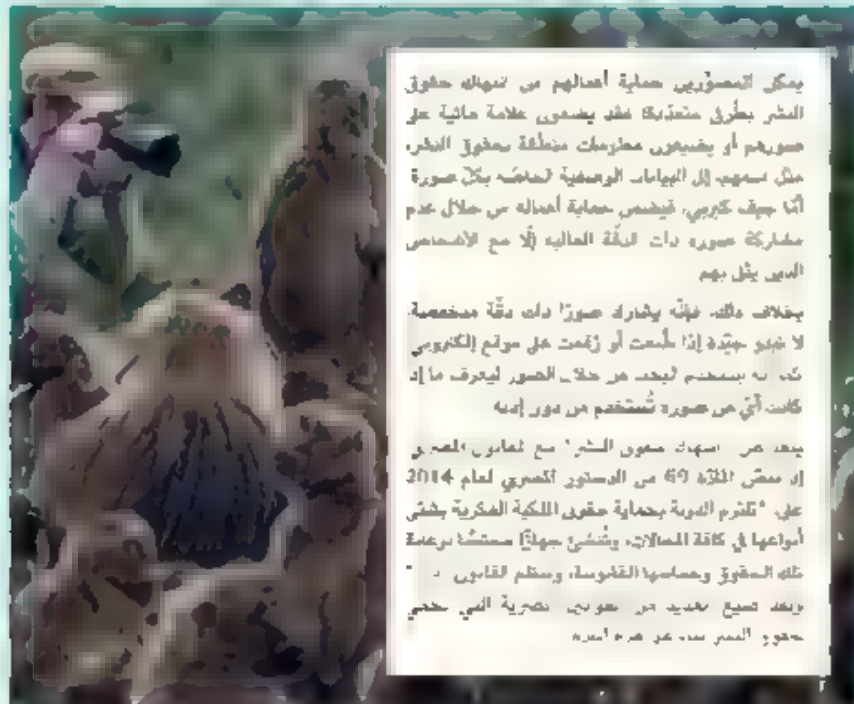 يمكن للمصوّرين حماية أعمالهم من انتهاك حقوق
النشر بطُرق متعدّدة؛ فقد يضعون علامة مائية على
صورهم أو يضيفون معلومات متعلّقة بحقوق النشر،
مثل اسمهم، إلى البيانات الوصفية الخاصّة بكلّ صورة.
أمّا جيف كيربي، فيضمن حماية أعماله من خلال عدم
مشاركة صوره ذات الدقّة العالية إلّا مع الأشخاص
الذين يثق بهم.
بخلاف ذلك، فإنّه يشارك صورًا ذات دقّة منخفضة،
لا تبدو جيّدة إذا طُبعت أو رُفعت على موقع إلكتروني.
كما أنه يستخدم البحث من خلال الصور ليعرف ما إذا
كانت أيّ من صوره تُستخدم من دون إذنه.
حقوق النشر مع القانون المصري
إذ تنصّ المادّة 69 من الدستور المصري لعام 2014
على: "تلتزم الدولة بحماية حقوق الملكية الفكرية بشتى
أنواعها في كافة المجالات، وتُنشئ جهازًا مختصًّا لرعاية
تلك الحقوق وحمايتها القانونية، وينظم القانون ذلك."
المصرية التي تحمي
حقوق النشر